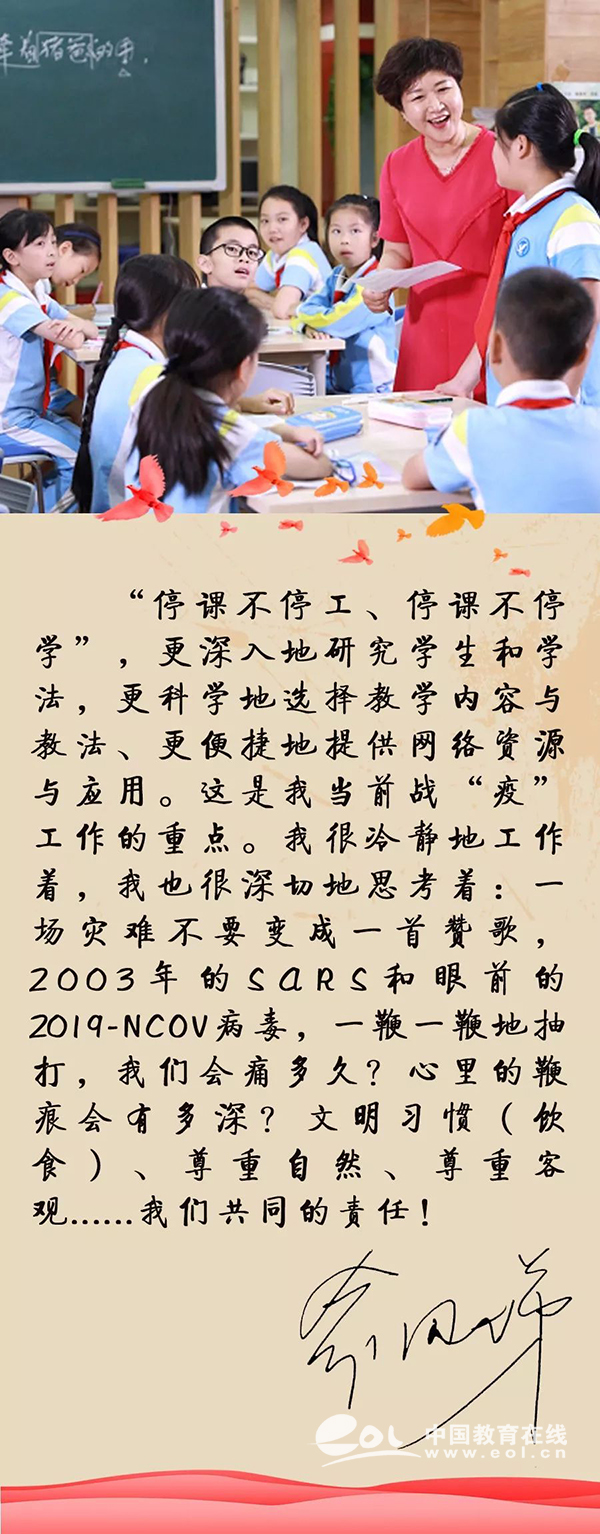 的手,
“停课不停工、停课不停
学”，更深入地研究学生和学
法，更科学地选择教学内容与
教法、更便捷地提供网络资源
与应用。这是我当前战“疫”
工作的重点。我很冷静地工作
着，我也很深切地思考着：一
场灾难不要变成一首赞歌，
2003年的SARS和眼前的
2019-NCOV病毒，一鞭一鞭地抽
打，我们会痛多久？心里的鞭
痕会有多深？文明习惯（饮
食）、尊重自然、尊重客
观......我们共同的责任！
俞国娣
eol 中国教育在线
www.eol.cn